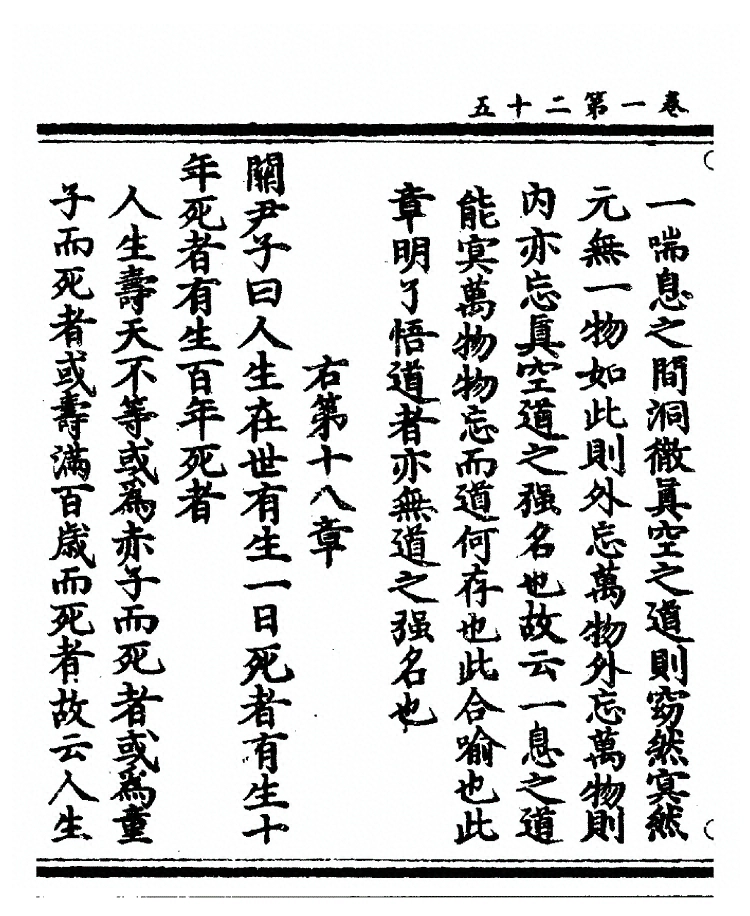 卷一第二十五
一喘息之間洞徹眞空之道則窈然冥然
元無一物如此則外忘萬物外忘萬物則
內亦忘眞空道之强名也故云一息之道
能冥萬物物忘而道何存也此合喻也此
章明了悟道者亦無道之强名也
右第十八章
關尹子曰人生在世有生一日死者有生十
年死者有生百年死者
人生壽夭不等或爲赤子而死者或爲童
子而死者或壽滿百歲而死者故云人生